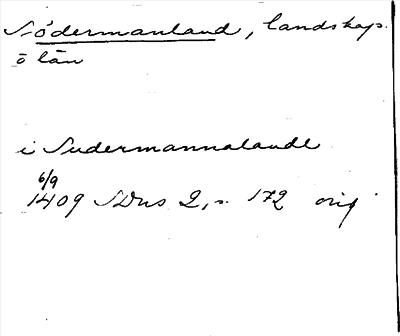 Södermanland, landskap.
o län
i Sudermannalande
6/9
1409 SDns 2, s. 172 orig